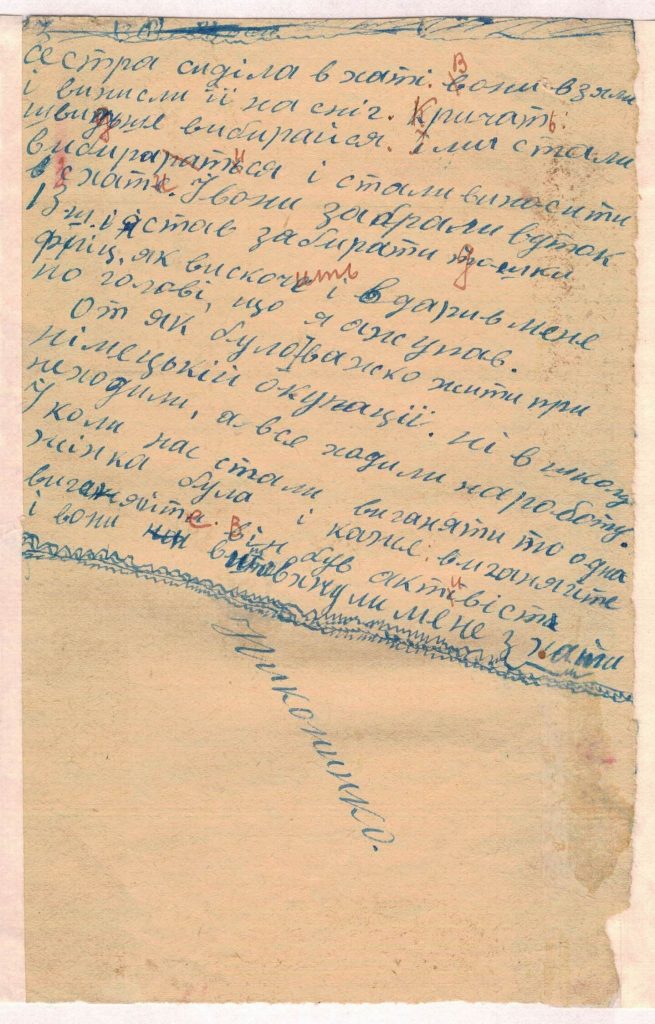 сестра сиділа в хаті. Вони взяли
і винисли її на сніг. Кричать:
швидше вибирайся. І ми стали
вибираться і стали виносити
з хати. І вони забрали вуток
13 ш. і я став забирати
фріц, як вискочить і вдарив мене
по голові, що я аж упав.
От як було важко жити при
німецькій окупації. Ні в школу
неходили, а все ходили на роботу.
І коли нас стали виганяти то одна
жінка була і каже: виганяйте
виганяйте. Він був активіст
і вони мене з хати
Никоненко.